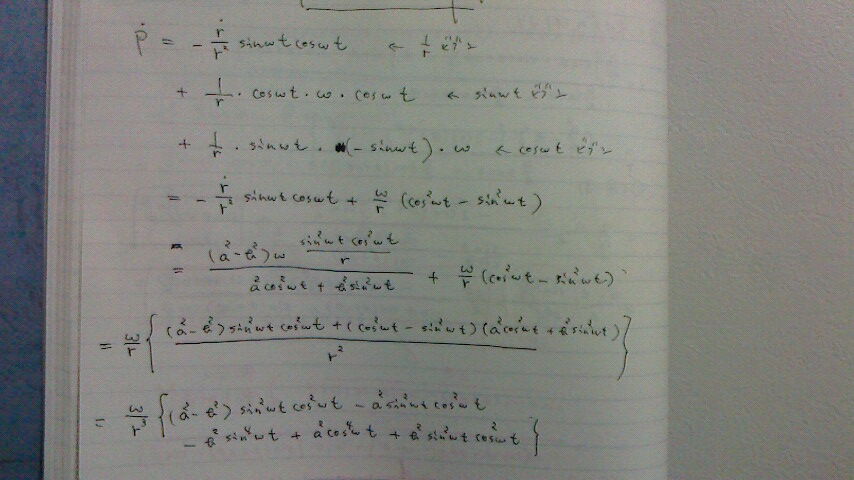 Ṗ = - ṙ/r² sinωt cosωt ← 1/r ビブン
+ 1/r · cosωt · ω · cosωt ← sinωt ビブン
+ 1/r · sinωt · (- sinωt) · ω ← cosωt ビブン
= - ṙ/r² sinωt cosωt + ω/r (cos²ωt - sin²ωt)
= (a² - b²) ω (sin²ωt cos²ωt / r) / (a²cos²ωt + b²sin²ωt) + ω/r (cos²ωt - sin²ωt)
= ω/r { ((a² - b²) sin²ωt cos²ωt + (cos²ωt - sin²ωt)(a²cos²ωt + b²sin²ωt)) / r² }
= ω/r³ { (a² - b²) sin²ωt cos²ωt - a²sin²ωt cos²ωt
- b² sin⁴ωt + a²cos⁴ωt + b² sin²ωt cos²ωt }